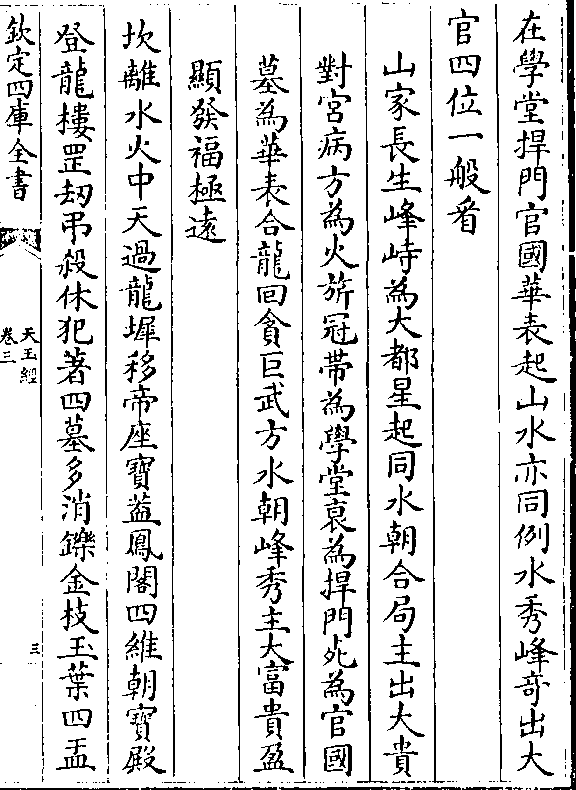 在學堂捍門官國華表起山水亦同例水秀峰竒出大
官四位一般看
山家長生峰峙為大都星起同水朝合局主出大貴
對宫病方為火旂冠帶為學堂衰為捍門死為官國
墓為華表合龍回貪巨武方水朝峰秀主大富貴盈
顯發福極遠
坎離水火中天過龍墀移帝座寶葢鳳閣四維朝寶殿
登龍樓罡刼弔殺休犯著四墓多消鑠金枝玉葉四孟
欽定四庫全書
天玉經
卷三
三